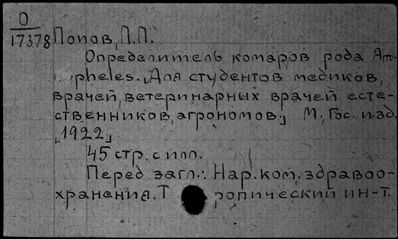 О
17378
Попов, П.П.
Определитель комаров рода An-
pheles. [Для студентов медиков,
врачей, ветеринарных врачей есте-
ственников, агрономов] М., Гос. изд.
[1922]
45 стр. с илл.
Перед загл.: Нар. ком. здравоо-
хранения. Т ропический ин-т.